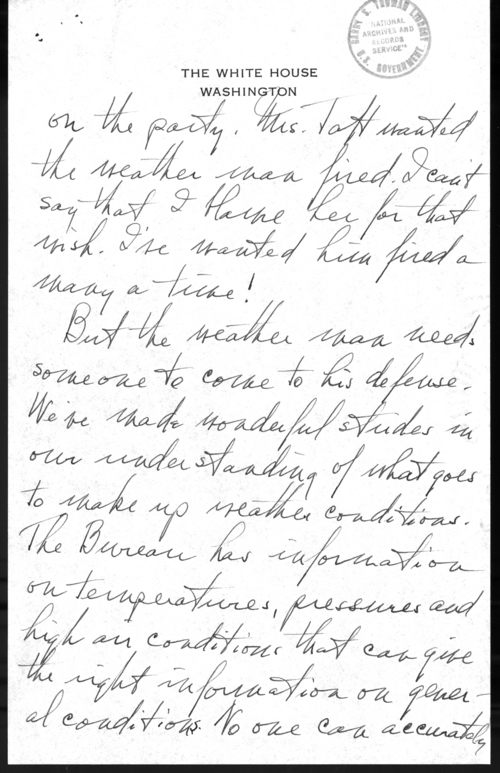 HARRY S. TRUMAN LIBRARY
"NATIONAL
ARCHIVES AND
RECORDS
SERVICE"
U.S. GOVERNMENT
THE WHITE HOUSE
WASHINGTON
on the party. Mrs. Taft wanted
the weather man fired. I can't
say that I blame her for that
wish. I've wanted him fired a
many a time!
But the weather man needs
someone to come to his defense.
We've made wonderful studes in
our understanding of what goes
to make up weather conditions.
The Bureau has information
on temperatures, pressures and
high air conditions that can give
the right information on gener-
al conditions. No one can accurately